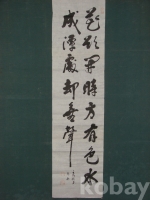 花欲開時方有色水
成潭處却無聲
kobay